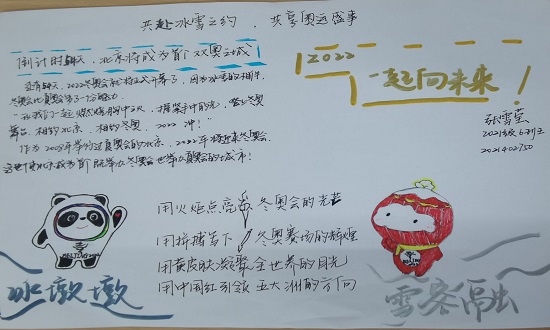 共赴冰雪之约，共享奥运盛事
倒计时 天，北京将成为首个双奥之城
2022
一起向未来！
还有 天，2022冬奥会就将正式开幕了，因为冰雪的相伴，
冬奥比夏奥多了一份
一起让我们一起燃烧胸中 ，
舞台，相约北京，相约冬奥，2022 冲！"
作为2008年举办过夏奥会的北京，2022年将迎来冬奥会，
这也使北京成为首个既举办冬奥会也举办夏奥会的城市！
张雪莹
2021级6
2021402750
用火炬点亮 冬奥会的光芒
用拼搏写下 冬奥赛场的辉煌
用黄皮肤凝聚全世界的目光
用中国红引领五大洲的方向
BEIJING 2022
冰墩墩
雪容融